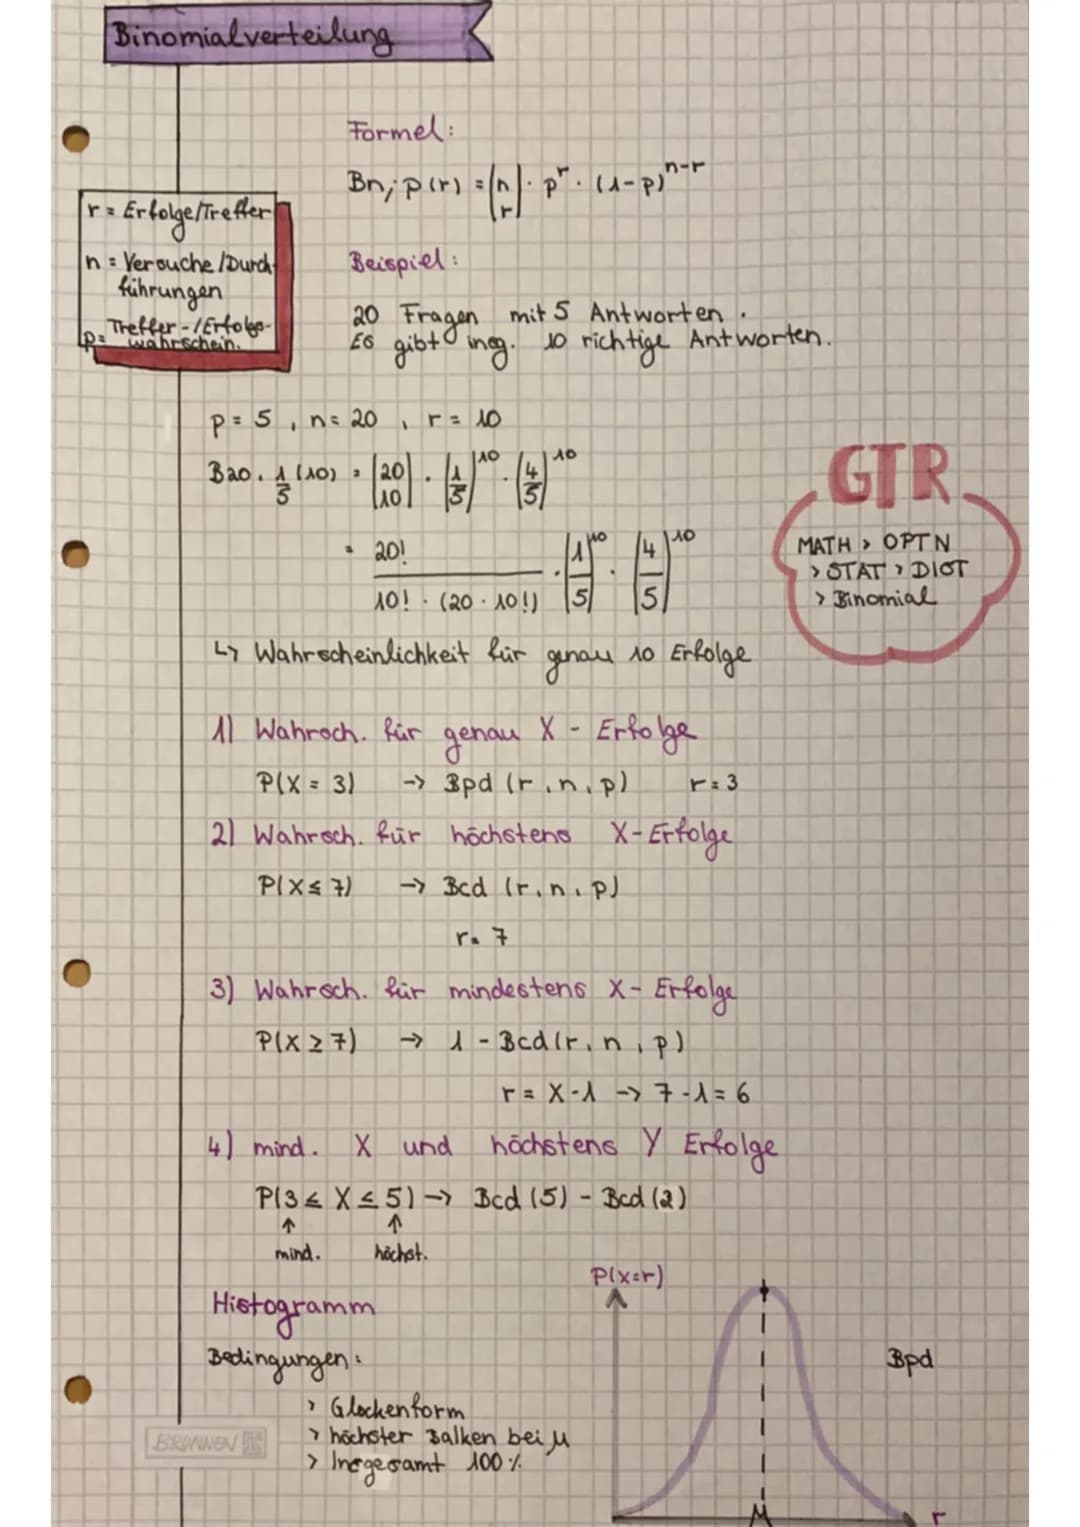 Binomialverteilung
Formel:
Bn; p (r) = (n r) · p^r · (1-p)^n-r
r = Erfolge/Treffer
n = Versuche /Durch-
führungen
p= Treffer-/Erfolgs-
wahrschein.
Beispiel:
20 Fragen mit 5 Antworten.
Es gibt insg. 10 richtige Antworten.
p = 5, n = 20, r = 10
B20, 1/5 (10) = (20 10) · (1/5)^10 · (4/5)^10
= 20! / 10! · (20 · 10!) · (1/5)^10 · (4/5)^10
GTR
MATH > OPTN
> STAT > DIST
> Binomial
↳ Wahrscheinlichkeit für genau 10 Erfolge
1) Wahrsch. für genau X - Erfolge
P(X = 3) → Bpd (r, n, p) r = 3
2) Wahrsch. für höchstens X-Erfolge
P(X ≤ 7) → Bcd (r, n, p)
r = 7
3) Wahrsch. für mindestens X - Erfolge
P(X ≥ 7) → 1 - Bcd(r, n, p)
r = X-1 → 7-1 = 6
4) mind. X und höchstens Y Erfolge
P(3 ≤ X ≤ 5) → Bcd (5) - Bcd (2)
↑ ↑
mind. höchst.
Histogramm
Bedingungen:
> Glockenform
> höchster Balken bei μ
> Insgesamt 100%
P(x=r)
Bpd
μ
r
BRUNNEN